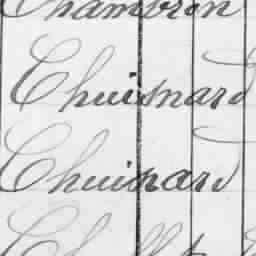 Chambron
Chuisnard
Chuisnard